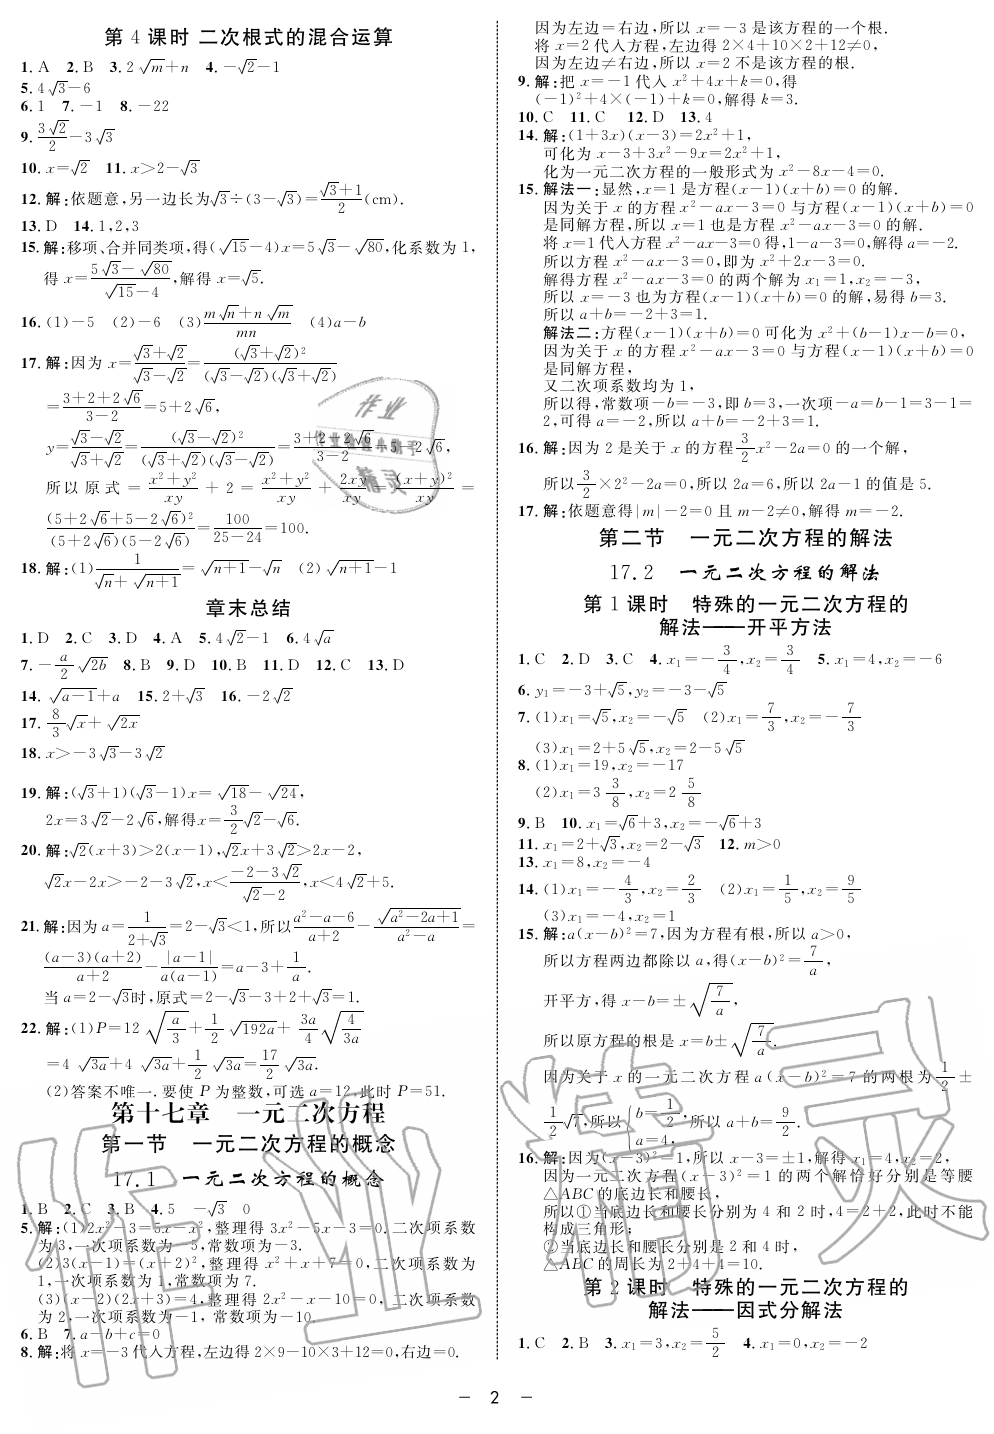 第 4 课时 二次根式的混合运算
1. A 2. B 3. 2√m+n 4. -√2-1
5. 4√3-6
6. 1 7. -1 8. -22
9. 3√2/2-3√3
10. x=√2 11. x>2-√3
12. 解:依题意,另一边长为√3÷(3-√3)=(√3+1)/2(cm).
13. D 14. 1,2,3
15. 解:移项、合并同类项,得(√15-4)x=5√3-√80,化系数为 1,
得 x=(5√3-√80)/(√15-4),解得 x=√5.
16. (1)-5 (2)-6 (3)(m√n+n√m)/mn (4)a-b
17. 解:因为 x=(√3+√2)/(√3-√2)=(√3+√2)²/((√3-√2)(√3+√2))
=(3+2+2√6)/(3-2)=5+2√6,
y=(√3-√2)/(√3+√2)=(√3-√2)²/((√3+√2)(√3-√2))=(3+2-2√6)/(3-2)=5-2√6,
所以原式=(x²+y²)/xy+2=(x²+y²)/xy+2xy/xy=(x+y)²/xy=
(5+2√6+5-2√6)²/((5+2√6)(5-2√6))=100/(25-24)=100.
18. 解:(1)1/(√n+√(n+1))=√(n+1)-√n (2)√(n+1)-1
章末总结
1. D 2. C 3. D 4. A 5. 4√2-1 6. 4√a
7. -a/2 √2b 8. B 9. D 10. B 11. D 12. C 13. D
14. √(a-1)+a 15. 2+√3 16. -2√2
17. 8/3 √x+√2x
18. x>-3√3-3√2
19. 解:(√3+1)(√3-1)x=√18-√24,
2x=3√2-2√6,解得x=3/2 √2-√6.
20. 解:√2(x+3)>2(x-1),√2x+3√2>2x-2,
√2x-2x>-2-3√2,x<(-2-3√2)/(√2-2),x<4√2+5.
21. 解:因为 a=1/(2+√3)=2-√3<1,所以(a²-a-6)/(a+2)-√(a²-2a+1)/(a²-a)=
(a-3)(a+2)/(a+2)-|a-1|/(a(a-1))=a-3+1/a.
当 a=2-√3时,原式=2-√3-3+2+√3=1.
22. 解:(1)P=12√(a/3)+1/2 √192a+3a/4 √(4/3a)
=4√3a+4√3a+1/2 √3a=17/2 √3a.
(2)答案不唯一.要使 P 为整数,可选 a=12,此时 P=51.
第十七章 一元二次方程
第一节 一元二次方程的概念
17.1 一元二次方程的概念
1. B 2. C 3. B 4. 5 -√3 0
5. 解:(1)2x²-3=5x-x²,整理得 3x²-5x-3=0.二次项系数
为 3,一次项系数为-5,常数项为-3.
(2)3(x-1)=(x+2)²,整理得 x²+x+7=0,二次项系数为
1,一次项系数为 1,常数项为 7.
(3)(x-2)(2x+3)=4,整理得 2x²-x-10=0,二次项系数
为 2,一次项系数为-1,常数项为-10.
6. B 7. a-b+c=0
8. 解:将 x=-3 代入方程,左边得 2×9-10×3+12=0,右边=0.
因为左边=右边,所以 x=-3 是该方程的一个根.
将 x=2 代入方程,左边得 2×4+10×2+12≠0,
因为左边≠右边,所以 x=2 不是该方程的根.
9. 解:把 x=-1 代入 x²+4x+k=0,得
(-1)²+4×(-1)+k=0,解得 k=3.
10. C 11. C 12. D 13. 4
14. 解:(1+3x)(x-3)=2x²+1,
可化为 x-3+3x²-9x=2x²+1,
化为一元二次方程的一般形式为 x²-8x-4=0.
15. 解法一:显然,x=1 是方程(x-1)(x+b)=0 的解.
因为关于 x 的方程 x²-ax-3=0 与方程(x-1)(x+b)=0
是同解方程,所以 x=1 也是方程 x²-ax-3=0 的解.
将 x=1代入方程 x²-ax-3=0 得,1-a-3=0,解得 a=-2.
所以方程 x²-ax-3=0,即为 x²+2x-3=0.
解得方程 x²-ax-3=0 的两个解为 x₁=1,x₂=-3,
所以 x=-3 也为方程(x-1)(x+b)=0 的解,易得 b=3.
所以 a+b=-2+3=1.
解法二:方程(x-1)(x+b)=0 可化为 x²+(b-1)x-b=0,
因为关于 x 的方程 x²-ax-3=0 与方程(x-1)(x+b)=0
是同解方程,
又二次项系数均为 1,
所以得,常数项-b=-3,即 b=3,一次项-a=b-1=3-1=
2,可得 a=-2,所以 a+b=-2+3=1.
16. 解:因为 2 是关于 x 的方程3/2 x²-2a=0 的一个解,
所以3/2×2²-2a=0,所以 2a=6,所以 2a-1 的值是 5.
17. 解:依题意得|m|-2=0 且 m-2≠0,解得 m=-2.
第二节 一元二次方程的解法
17.2 一元二次方程的解法
第 1 课时 特殊的一元二次方程的
解法——开平方法
1. C 2. D 3. C 4. x₁=-3/4,x₂=3/4 5. x₁=4,x₂=-6
6. y₁=-3+√5,y₂=-3-√5
7. (1)x₁=√5,x₂=-√5 (2)x₁=7/3,x₂=-7/3
(3)x₁=2+5√5,x₂=2-5√5
8. (1)x₁=19,x₂=-17
(2)x₁=3 3/8,x₂=2 5/8
9. B 10. x₁=√6+3,x₂=-√6+3
11. x₁=2+√3,x₂=2-√3 12. m>0
13. x₁=8,x₂=-4
14. (1)x₁=-4/3,x₂=2/3 (2)x₁=1/5,x₂=9/5
(3)x₁=-4,x₂=1
15. 解:a(x-b)²=7,因为方程有根,所以 a>0,
所以方程两边都除以 a,得(x-b)²=7/a,
开平方,得 x-b=±√(7/a),
所以原方程的根是 x=b±√(7/a).
因为关于 x 的一元二次方程 a(x-b)²=7 的两根为1/2±
1/2 √7,所以{b=1/2, a=4, 所以 a+b=9/2.
16. 解:因为(x-3)²=1,所以 x-3=±1,解得 x₁=4,x₂=2,
因为一元二次方程(x-3)²=1 的两个解恰好分别是等腰
△ABC的底边长和腰长,
所以①当底边长和腰长分别为 4 和 2 时,4=2+2,此时不能
构成三角形;
②当底边长和腰长分别是 2 和 4 时,
△ABC 的周长为 2+4+4=10.
第 2 课时 特殊的一元二次方程的
解法——因式分解法
1. C 2. B 3. x₁=3,x₂=5/2 4. x₁=0,x₂=-2
- 2 -
作业精灵
作业
精灵